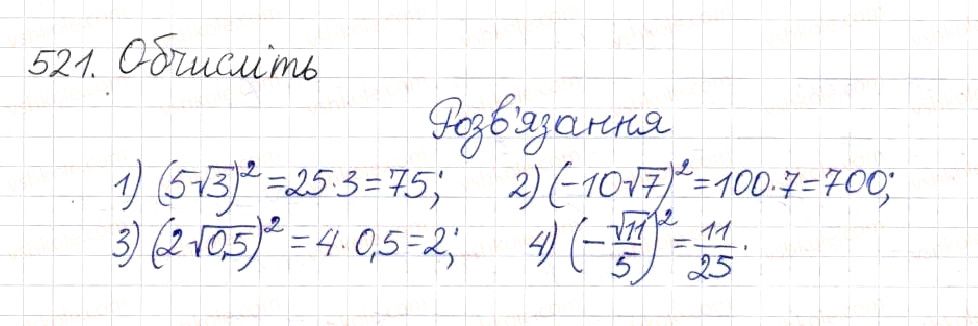 521. Обчисліть
Розв'язання
1) (5√3)² = 25·3 = 75; 2) (-10√7)² = 100·7 = 700;
3) (2√0,5)² = 4·0,5 = 2; 4) (-√11/5)² = 11/25.